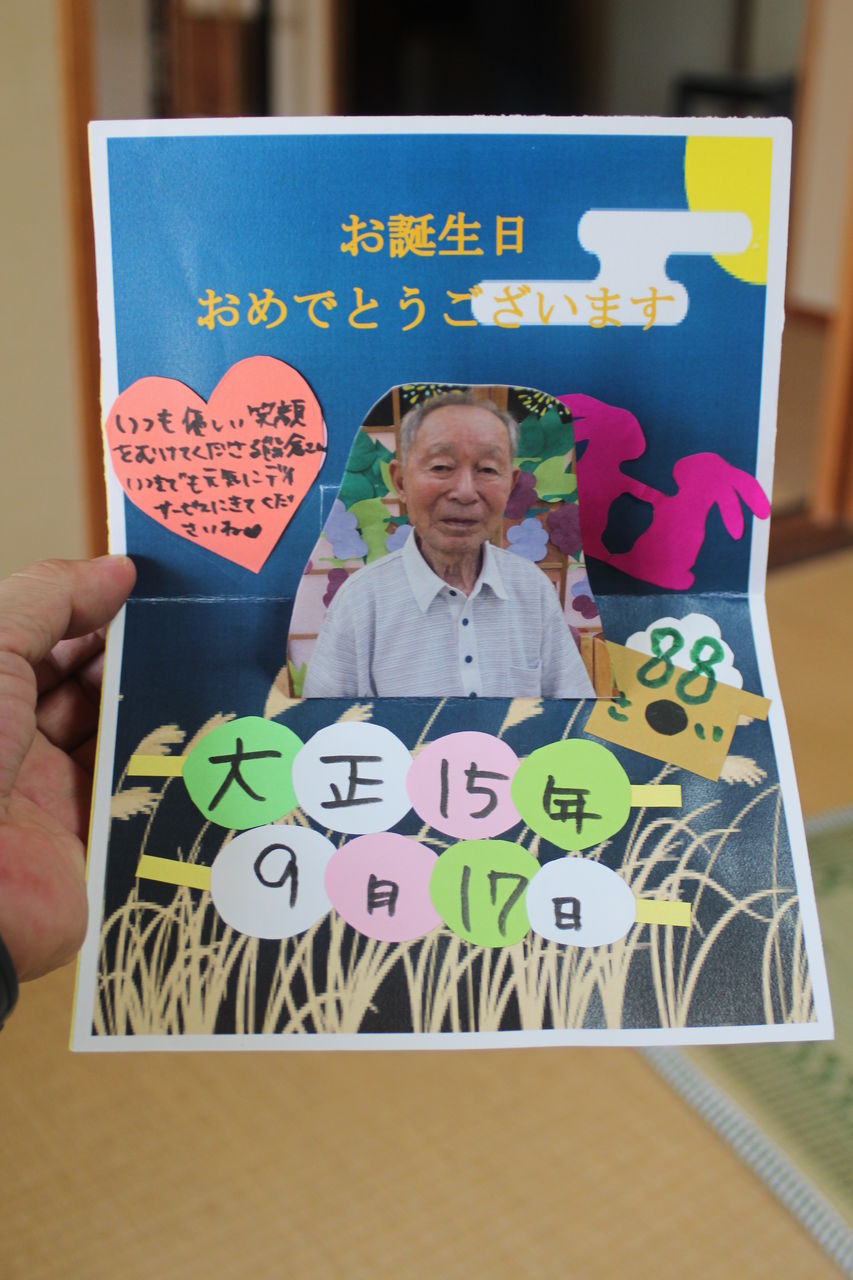 お誕生日
おめでとうございます
いつも優しい笑顔
をむけてくださる
いつまでも元気にデイ
サービスにきてくだ
さいね♥
88
さい
大正15年
9月17日